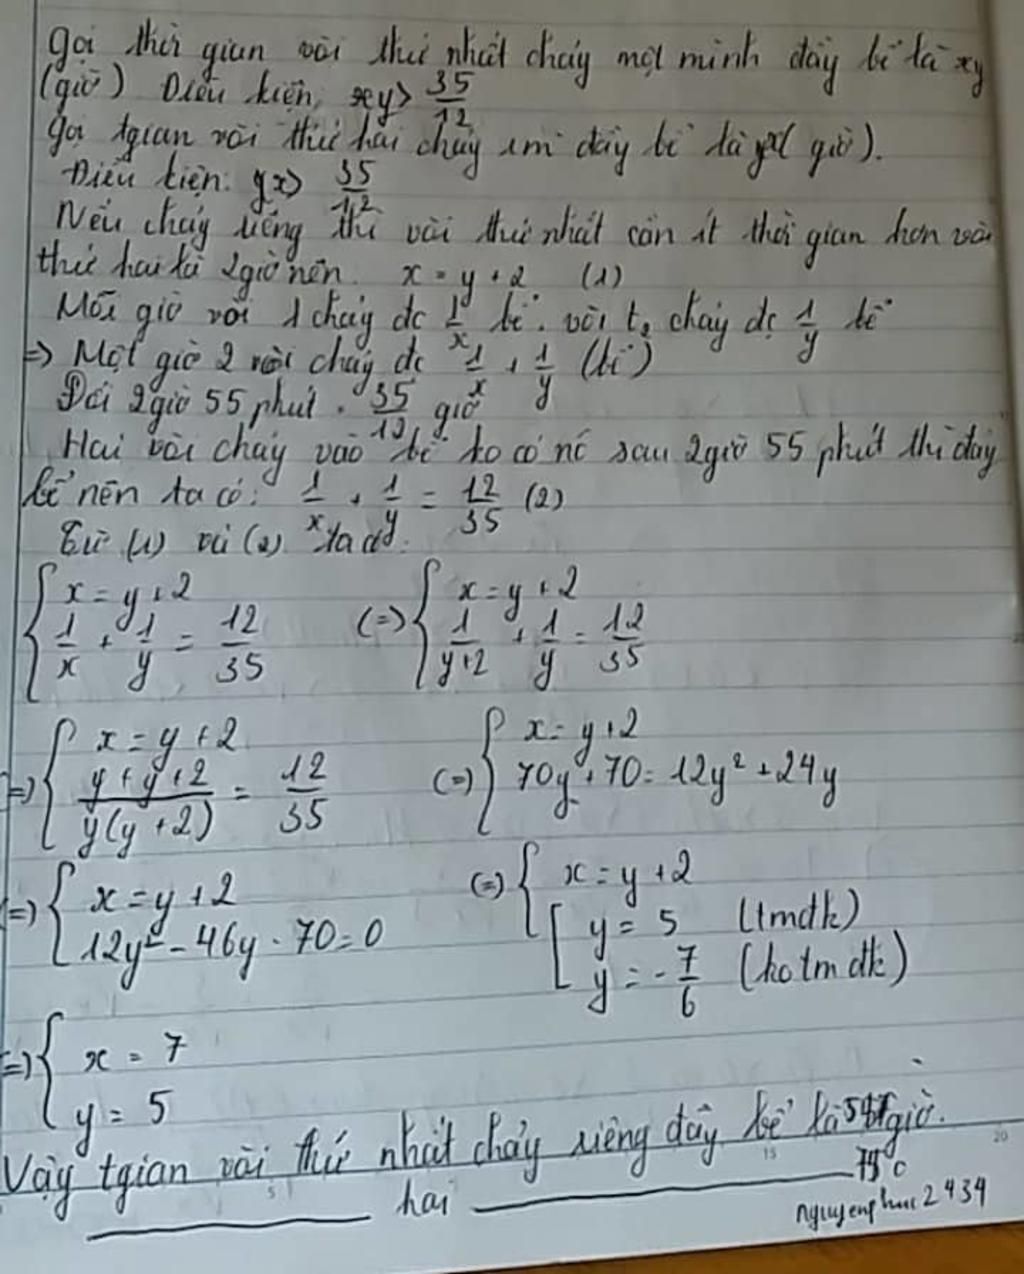 Gọi thời gian vòi thứ nhất chảy một mình đầy bể là y
(giờ) Điều kiện: y > 35/12
Gọi tgian vòi thứ hai chảy 1m đầy bể là x (giờ).
Điều kiện: x > 35/12
Nếu chảy riêng thì vòi thứ nhất cần ít thời gian hơn vòi
thứ hai là 2 giờ nên. x = y + 2 (1)
Mỗi giờ vòi 1 chảy dc 1/x bể. vòi t2 chảy dc 1/y bể
=> Một giờ 2 vòi chảy dc 1/x + 1/y (bể)
Đổi 2 giờ 55 phút = 35/12 giờ
Hai vòi chảy vào bể ko có nc sau 2 giờ 55 phút thì đầy
bể nên ta có: 1/x + 1/y = 12/35 (2)
Từ (1) và (2) ta có:
{ x = y + 2 ; 1/x + 1/y = 12/35 (=) { x = y + 2 ; 1/(y+2) + 1/y = 12/35
(=) { x = y + 2 ; (y + y + 2)/(y(y + 2)) = 12/35 (=) { x = y + 2 ; 70y + 70 = 12y² + 24y
(=) { x = y + 2 ; 12y² - 46y - 70 = 0 (=) { x = y + 2 ; [ y = 5 (tmdk) ; y = -7/6 (ko tm dk)
(=) { x = 7 ; y = 5
Vậy tgian vòi thứ nhất chảy riêng đầy bể là 5 giờ.
hai 7
nguyenphuc2434